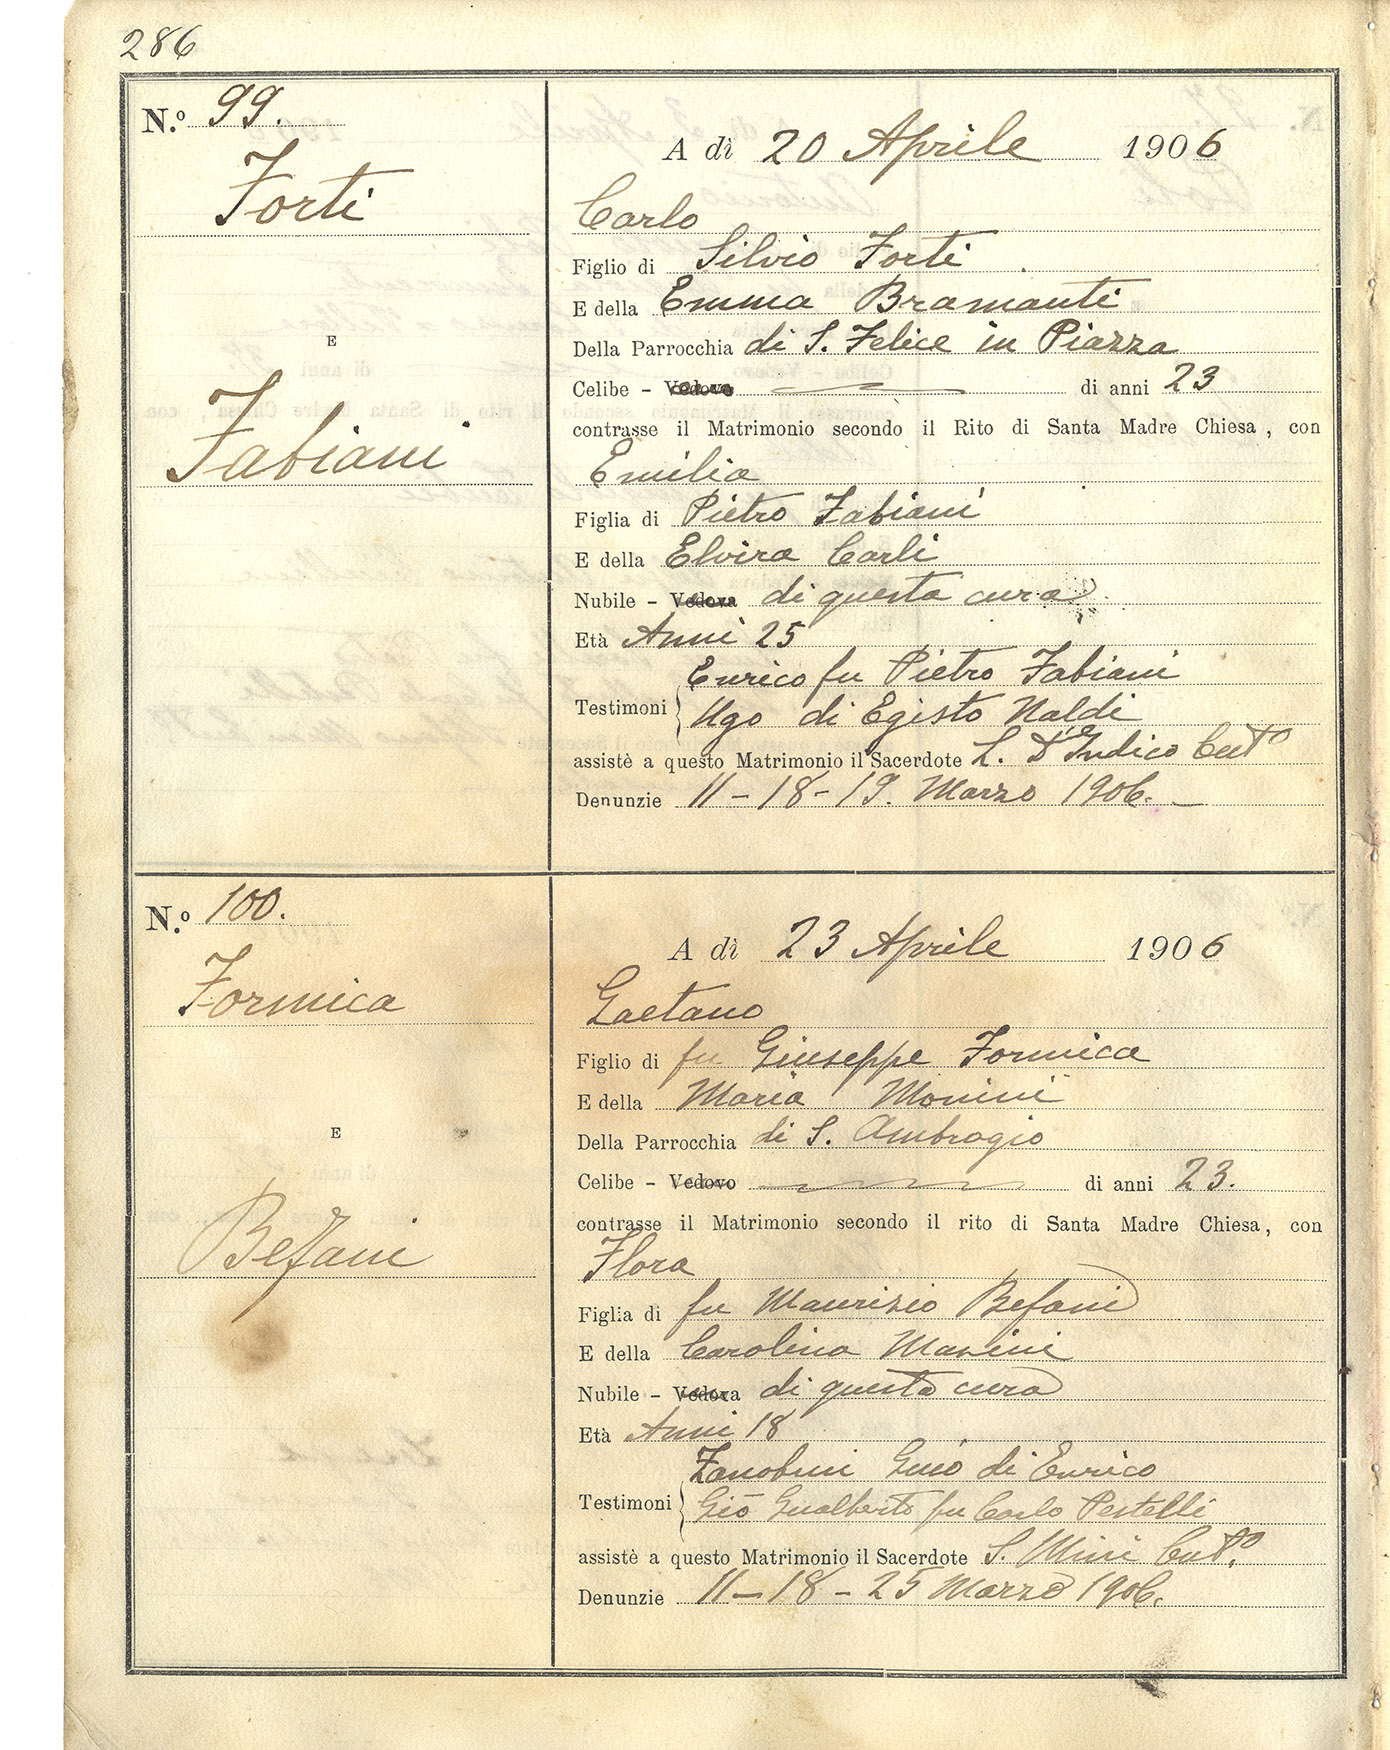 286
N.º 99.
Forti
E
Fabiani
A dì 20 Aprile 1906
Carlo
Figlio di Silvio Forti
E della Emma Bramanti
Della Parrocchia di S. Felice in Piazza
Celibe - Vedovo di anni 23
contrasse il Matrimonio secondo il Rito di Santa Madre Chiesa, con
Emilia
Figlia di Pietro Fabiani
E della Elvira Carli
Nubile - Vedova di questa cura
Età Anni 25
Enrico fu Pietro Fabiani
Testimoni
Ugo di Egisto Naldi
assistè a questo Matrimonio il Sacerdote L. Cutº
Denunzie 11-18-19. Marzo 1906.
N.º 100.
Formica
E
Befani
A dì 23 Aprile 1906
Gaetano
Figlio di fu Giuseppe Formica
E della Maria Monini
Della Parrocchia di S. Ambrogio
Celibe - Vedovo di anni 23.
contrasse il Matrimonio secondo il rito di Santa Madre Chiesa, con
Flora
Figlia di fu Maurizio Befani
E della Carolina Masini
Nubile - Vedova di questa cura
Età Anni 18
Zanobini Gino di Enrico
Testimoni
Giō Gualberto fu Carlo Pestelli
assistè a questo Matrimonio il Sacerdote S. Mini Cutº.
Denunzie 11-18-25 Marzo 1906.